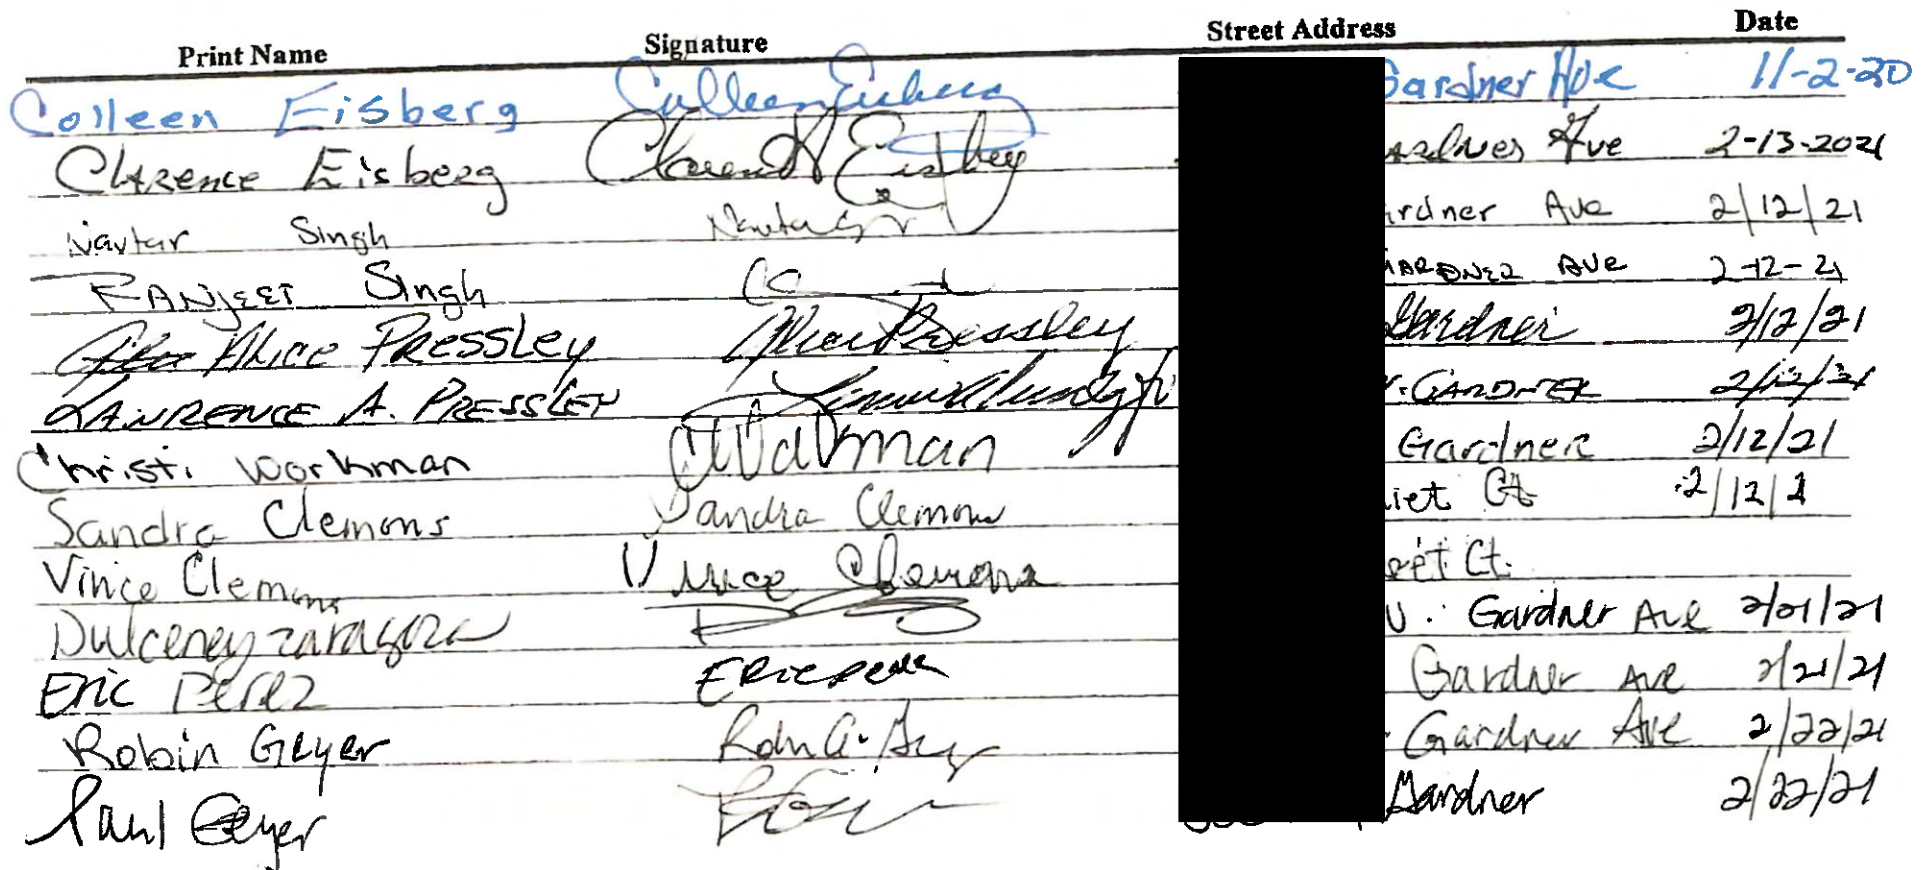 Print Name Signature Street Address Date
Colleen Eisberg Colleen Eisberg Gardner Ave 11-2-20
Clarence Eisberg Clarence Eisberg Ave 2-13-2021
Navtar Singh Ave 2/12/21
RANJEET Singh GARDNER AVE 2-12-21
Alice PRESSLEY Alice Pressley Gardner 2/12/21
LAWRENCE A. PRESSLEY GARDNER 2/12/21
Christi Workman Gardner 2/12/21
Sandra Clemons Sandra Clemons Ct
Vince Clemons Vince Clemons Ct.
Dulceney zaragoza Gardner Ave 2/21/21
Eric Perez Gardner Ave 2/21/21
Robin Geyer Gardner Ave 2/22/21
Paul Geyer Gardner 2/22/21